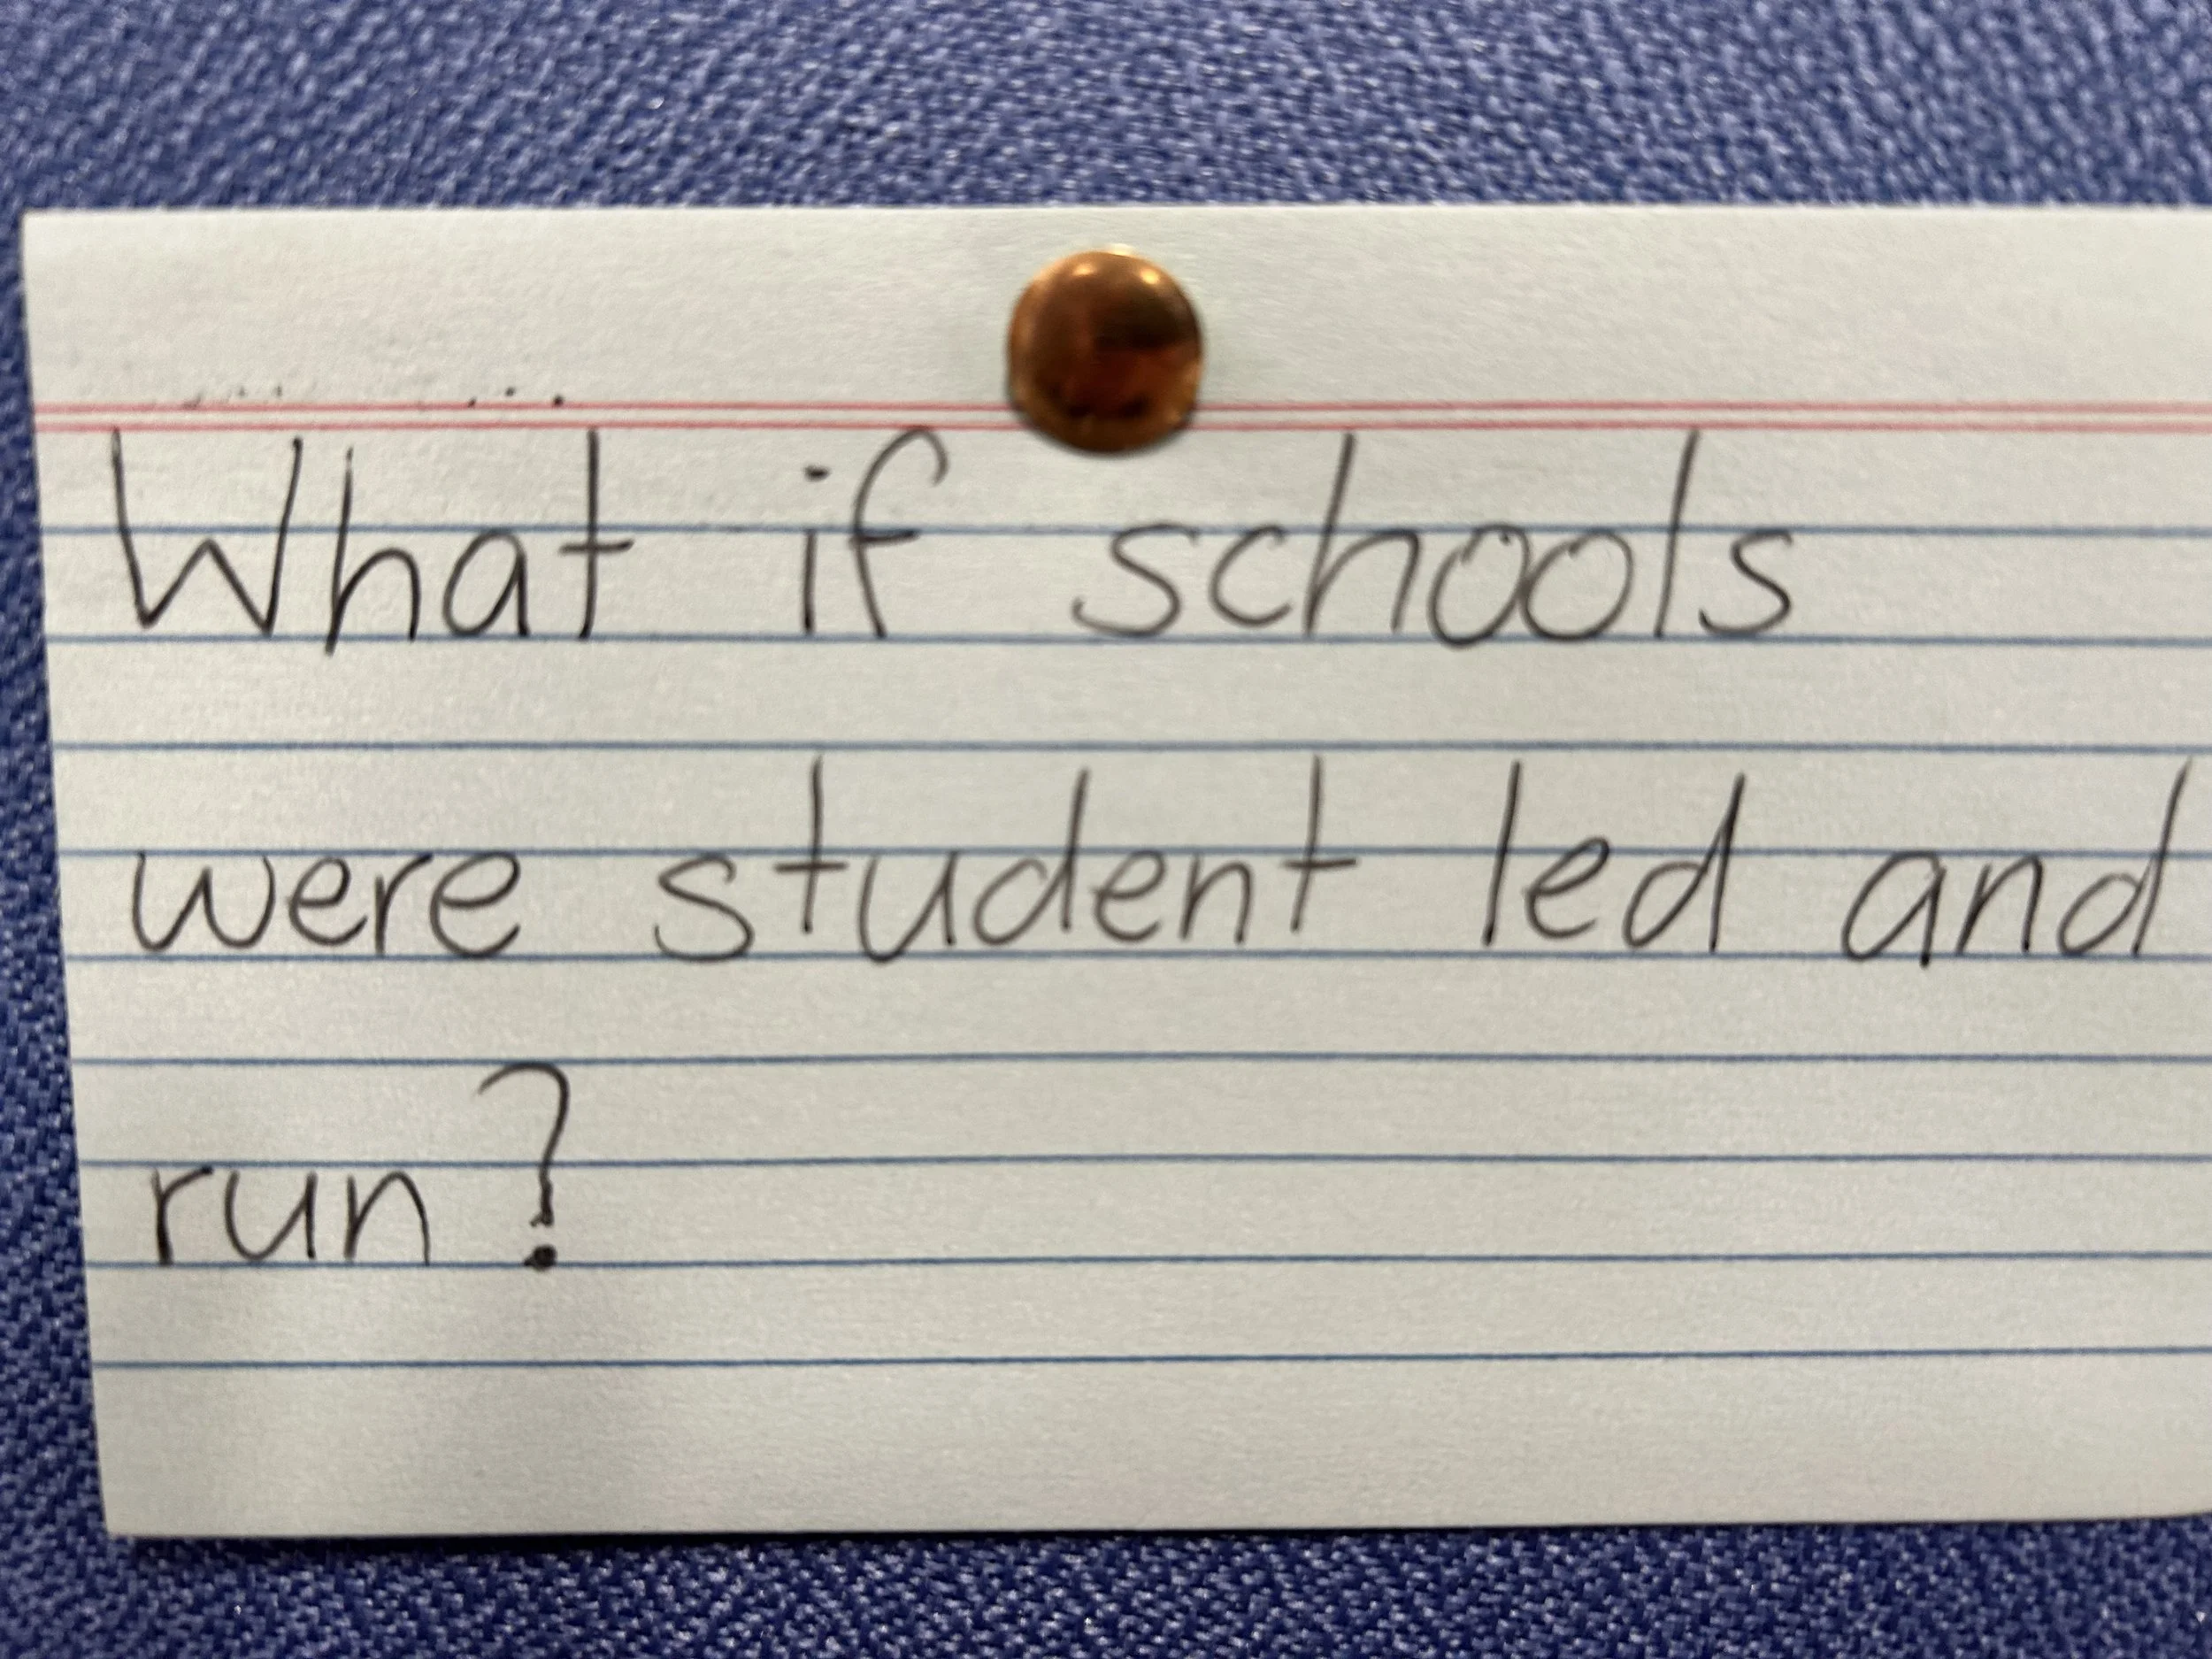 What if schools
were student led and
run?